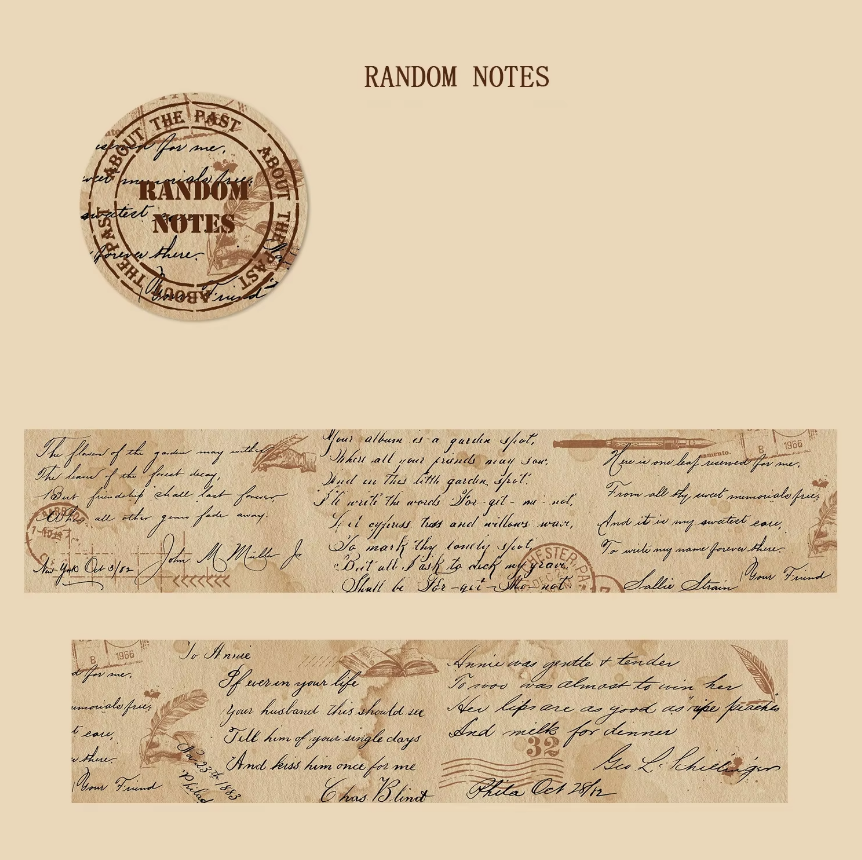 RANDOM NOTES
ABOUT THE PAST
ABOUT THE PAST
ABOUT THE PAST
for me,
RANDOM
sweetest
NOTES
forever there.
Your Friend
The flower of the garden may wither
The leaves of the forest decay,
But friendship shall last forever
When all other gems fade away.
John M Miller Jr
New York Oct 3/82
Your album is a garden spot,
Where all your friends may sow,
And in this little garden spot,
I'll write the words For-git-me-not,
cypress trees and willows wave,
To mark thy lonely spot,
But all I ask to deck my grave
Shall be For-get-Me-not
CHESTER, PA.
1966
Here is one leaf reserved for me,
From all thy sweet memorials free,
And it is my sweetest care,
To write my name forever there.
Your Friend
Sallie Strain
B 1966
for me,
memorials free,
care,
there.
Your Friend
Nov 23th 1883
Philad
To Annie
If ever in your life
Your husband this should see
Tell him of your single days
And kiss him once for me
Chas Blind
Annie was gentle & tender
To woo was almost to win her
Her lips are as good as ripe peaches
And milk for dinner
32
Geo L. Schillinger
Phila Oct 28/82